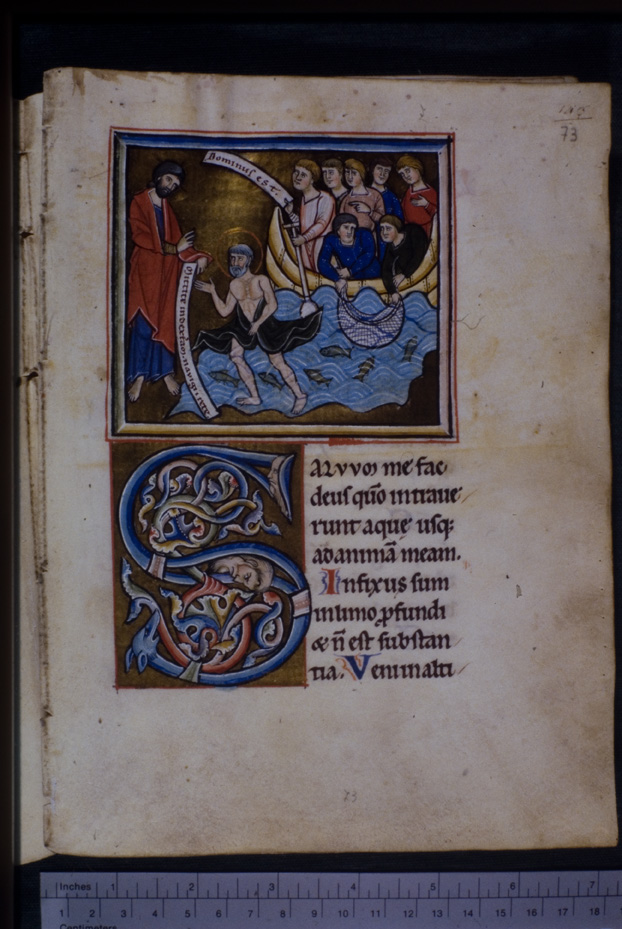 73
Dominus est.
mittite in dexteram navigii rete
ALVVɷ me fac
deus qūo intraue
runt aque usq;
ad animā meam.
Infixus sum
in limo ꝓfundi
& n̄ est substan
tia. Veni in alti
73
Inches 1 2 3 4 5 6 7
1 2 3 4 5 6 7 8 9 10 11 12 13 14 15 16 17 18
Centimeters